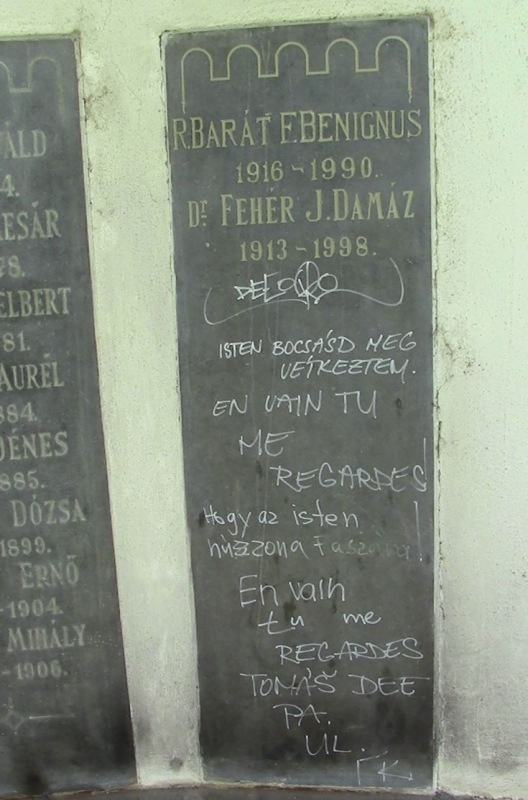 ÁLD
4.
CESÁR
78.
ELBERT
81.
AURÉL
884.
DÉNES
885.
DÓZSA
1899.
ERNŐ
-1904.
MIHÁLY
-1906.
R.BARÁT F.BENIGNUS
1916-1990.
Dr. FEHÉR J.DAMÁZ
1913-1998.
ISTEN BOCSÁSD MEG
VÉTKEZTEM.
EN VAIN TU
ME
REGARDES!
Hogy az isten
faszára!
En vain
tu me
REGARDES
TOMÁŠ DEE
PA.
UL.
FK